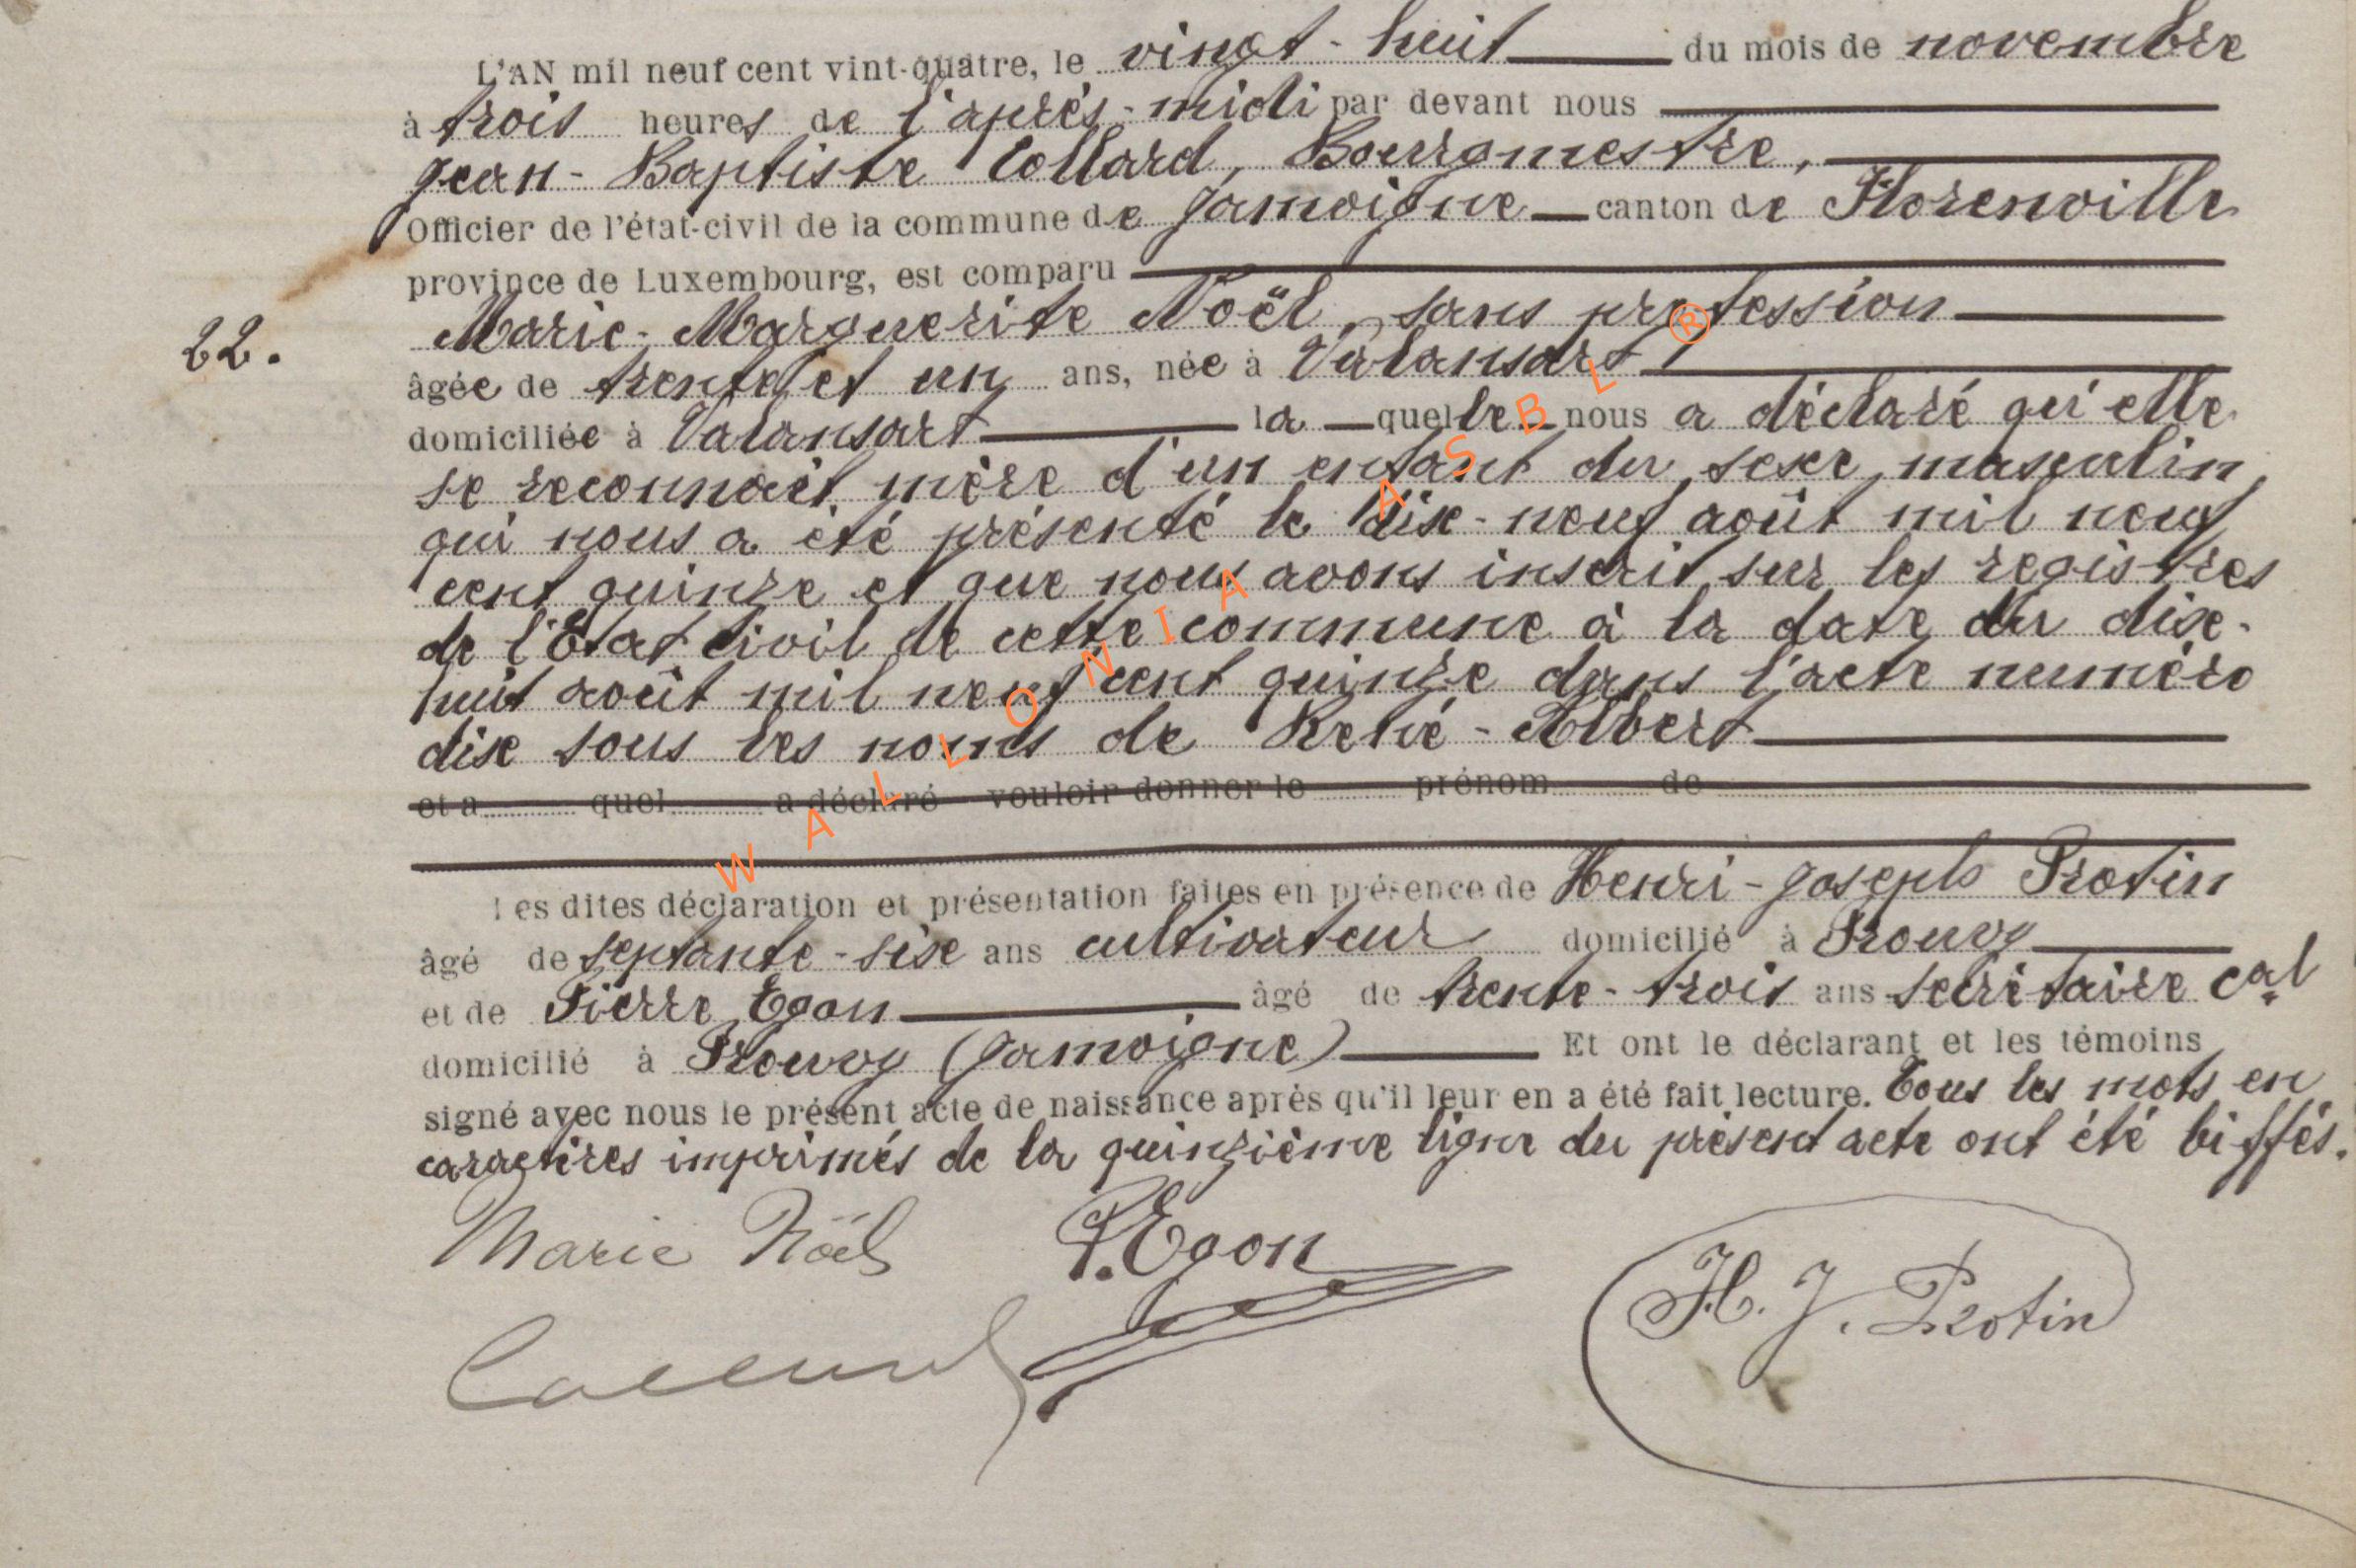 L'AN mil neuf cent vint-quatre, le vingt-huit du mois de novembre
à trois heures de l'après-midi par devant nous
Jean-Baptiste Collard, Bourgmestre,
Officier de l'état-civil de la commune de Jamoigne canton de Florenville
province de Luxembourg, est comparu
22.
Marie-Marguerite Noël, sans profession
âgée de trente et un ans, née à Valansart
domiciliée à Valansart la quelle nous a déclaré qu'elle
se reconnait mère d'un enfant du sexe masculin,
qui nous a été présenté le dix-neuf août mil neuf
cent quinze et que nous avons inscrit sur les registres
de l'Etat civil de cette commune à la date du dix-
huit août mil neuf cent quinze dans l'acte numéro
dix sous les noms de René-Albert
et a quel a déclaré vouloir donner le prénom de
Les dites déclaration et présentation faites en présence de Henri-Joseph Protin
âgé de septante-six ans cultivateur domicilié à Prouvy
et de Pierre Egon âgé de trente-trois ans secrétaire cal
domicilié à Prouvy (Jamoigne) Et ont le déclarant et les témoins
signé avec nous le présent acte de naissance après qu'il leur en a été fait lecture. Tous les mots en
caractères imprimés de la quinzième ligne du présent acte ont été biffés.
Marie Noël P. Egon
H. J. Protin
Collard
WALLONIA ASBL ®